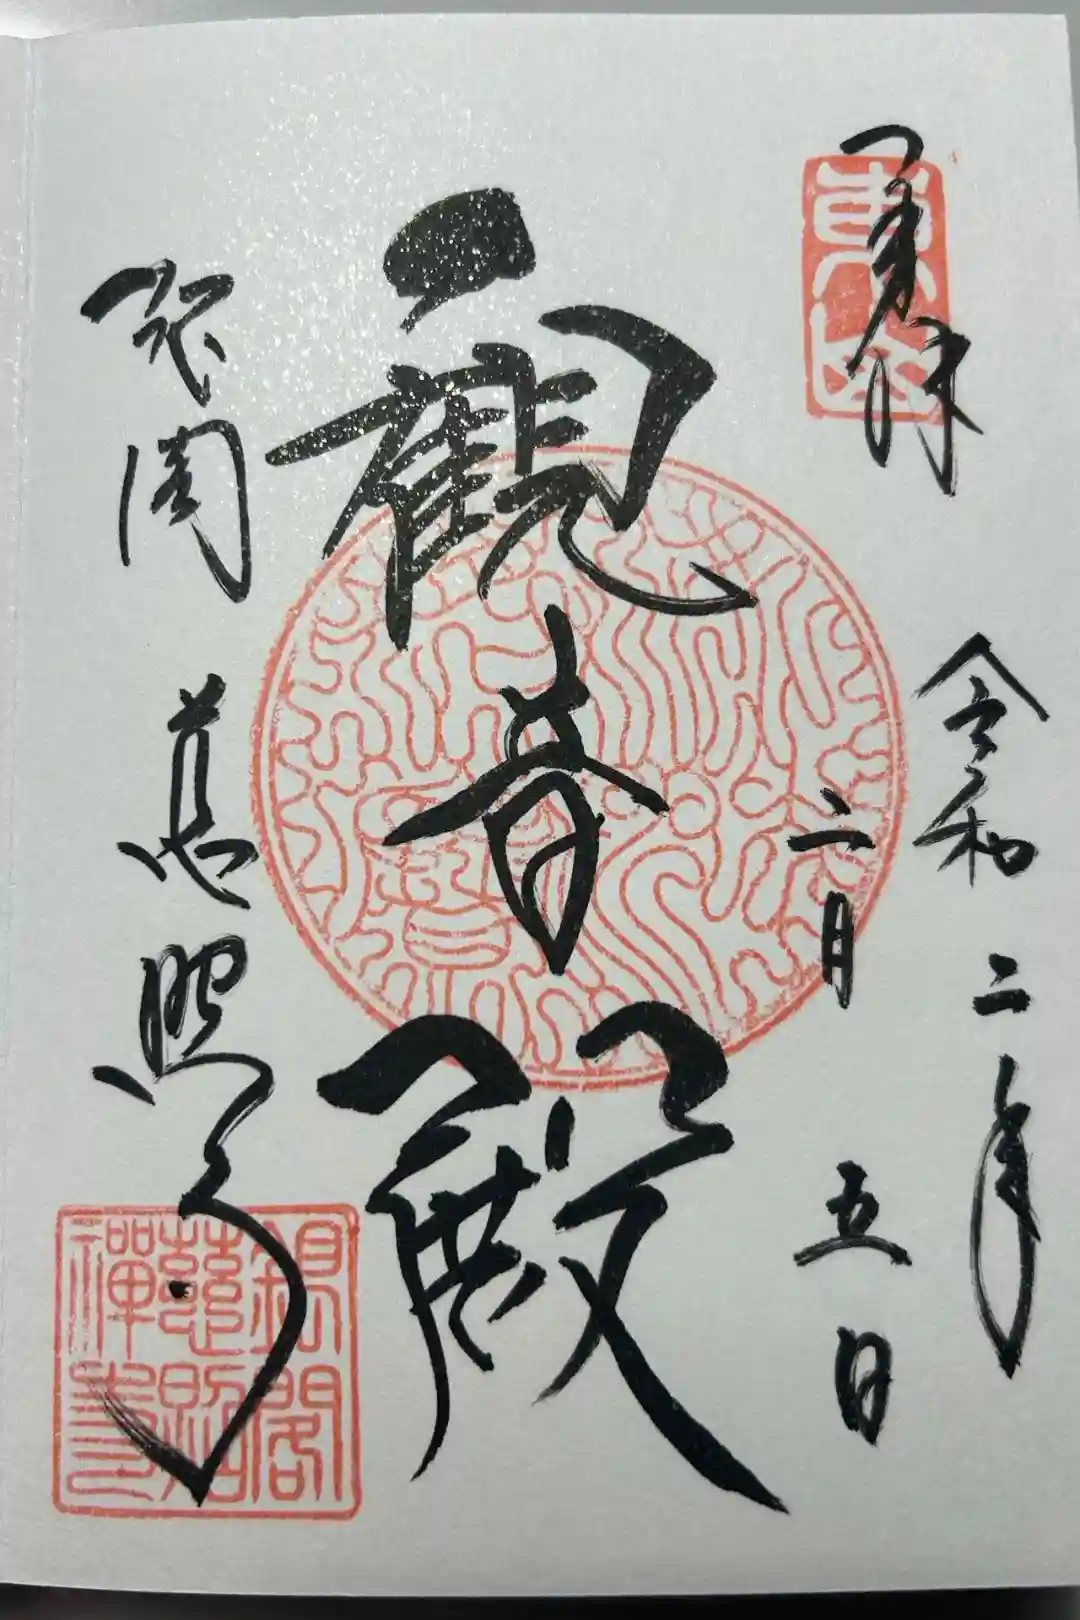 奉拝
東山
令和二年
二月五日
觀音殿
銀閣
慈照寺
銀閣
慈照
禅寺